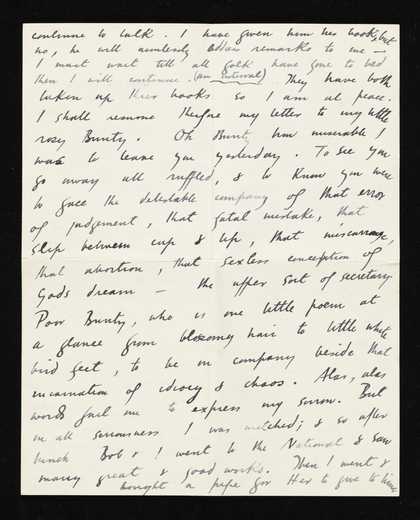 continue to talk. I have given him her book, but
no, he will aimlessly address remarks to me —
I must wait till all folk have gone to bed
then I will continue. (an interval) They have both
taken up their books so I am at peace.
I shall resume therefore my letter to my little
rosy Bunty. Oh Bunty how miserable I
was to leave you yesterday. To see you
go away all ruffled, & to know you were
to face the detestable company of that error
of judgement, that fatal mistake, that
slip between cup & lip, that miscarriage,
that abortion, that sexless conception of
Gods dream — the upper sort of secretary
Poor Bunty, who is one little poem at
a glance from blossomy hair to little white
bird feet, to be in company beside that
incarnation of idiocy & chaos. Alas, alas
words fail me to express my sorrow. But
in all seriousness I was wretched; & so after
lunch Bob & I went to the National & saw
many great & good works. Then I went &
bought a pipe for Her to give to him